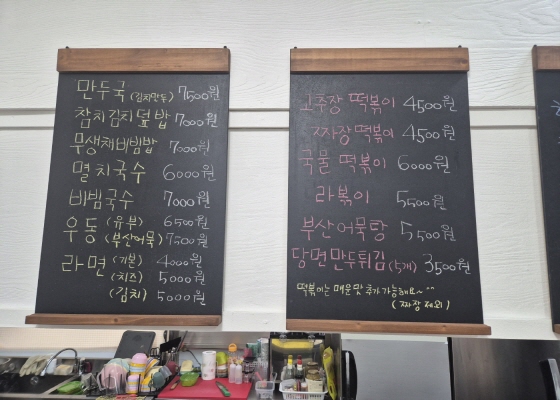 만두국 (김치만두) 7500원
참치김치덮밥 7000원
무생채비빔밥 7000원
멸치국수 6000원
비빔국수 7000원
우동 (유부) 6500원
(부산어묵) 7500원
라면 (기본) 4000원
(치즈) 5000원
(김치) 5000원
고추장 떡볶이 4500원
짜장떡볶이 4500원
국물 떡볶이 6000원
라볶이 5500원
부산어묵탕 5500원
당면만두튀김 (5개) 3500원
떡볶이는 매운맛 추가 가능해요~^^
(짜장 제외)